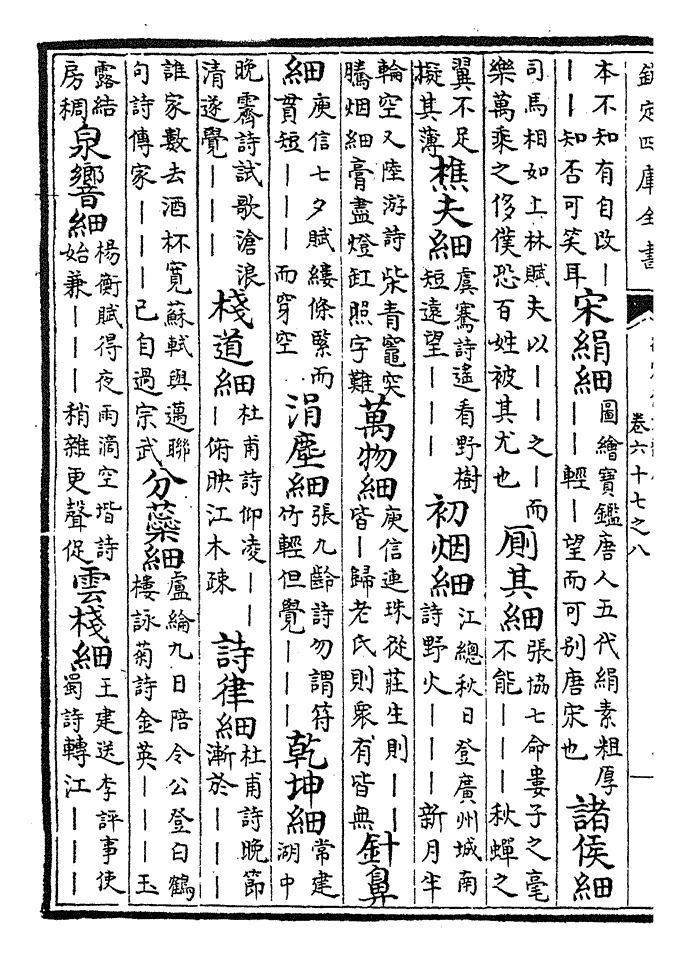 欽定四庫全書
卷六十七之八
本不知有自改丨丨丨知否可笑耳 宋絹細 圖繪寶鑑唐人五代絹素粗厚丨丨輕丨望而可別唐宋也 諸侯細
司馬相如上林賦夫以丨丨之丨而樂萬乘之侈僕恐百姓被其尤也 厠其細 張協七命婁子之毫不能丨丨丨秋蟬之
翼不足擬其薄 樵夫細 虞騫詩遙看野樹短遠望丨丨丨 初烟細 江總秋日登廣州城南詩野火丨丨丨新月半
輪空又陸游詩柴青竈突騰烟細膏盡燈缸照字難 萬物細 庾信連珠從莊生則丨丨皆丨歸老氏則衆有皆無 針鼻
細 庾信七夕賦縷條緊而貫短丨丨丨而穿空 涓塵細 張九齡詩勿謂符竹輕但覺丨丨丨 乾坤細 常建湖中
晚霽詩試歌滄浪清遂覺丨丨丨 棧道細 杜甫詩仰凌丨丨丨俯映江木疎 詩律細 杜甫詩晚節漸於丨丨丨
誰家數去酒杯寬蘇軾與邁聯句詩傳家丨丨丨已自過宗武 分蘂細 盧綸九日陪令公登白鶴樓詠菊詩金英丨丨丨玉
露結房稠 泉響細 楊衡賦得夜雨滴空堦詩始兼丨丨丨稍雜更聲促 雲棧細 王建送李評事使蜀詩轉江丨丨丨丨